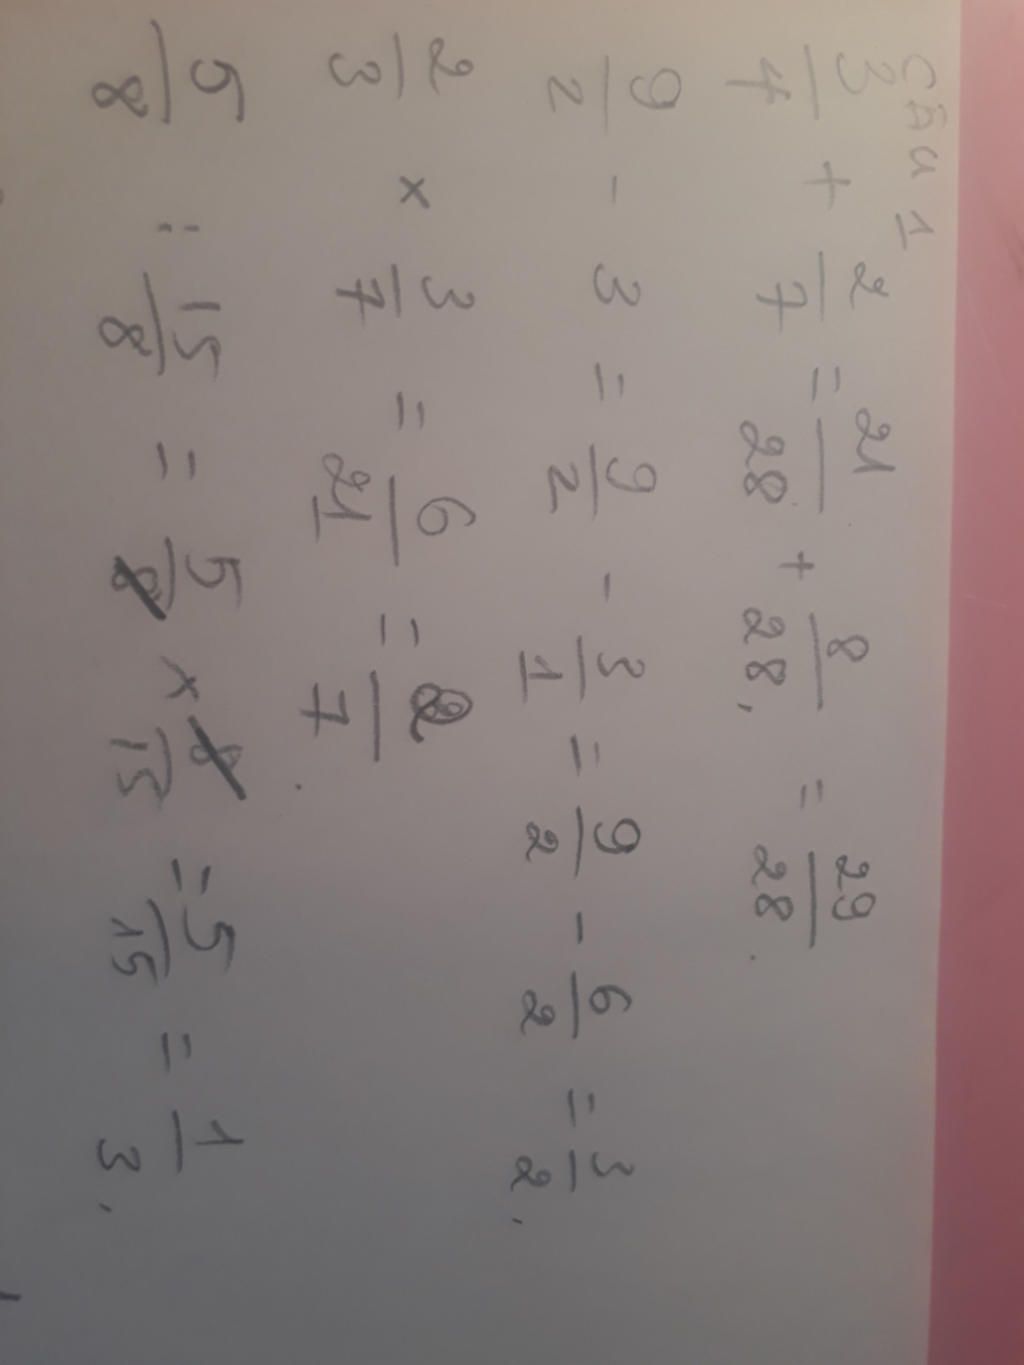 CÂU 1
3/4 + 2/7 = 21/28 + 8/28, = 29/28.
9/2 - 3 = 9/2 - 3/1 = 9/2 - 6/2 = 3/2.
2/3 × 3/7 = 6/21 = 2/7.
5/8 : 15/8 = 5/8 × 8/15 = 5/15 = 1/3.